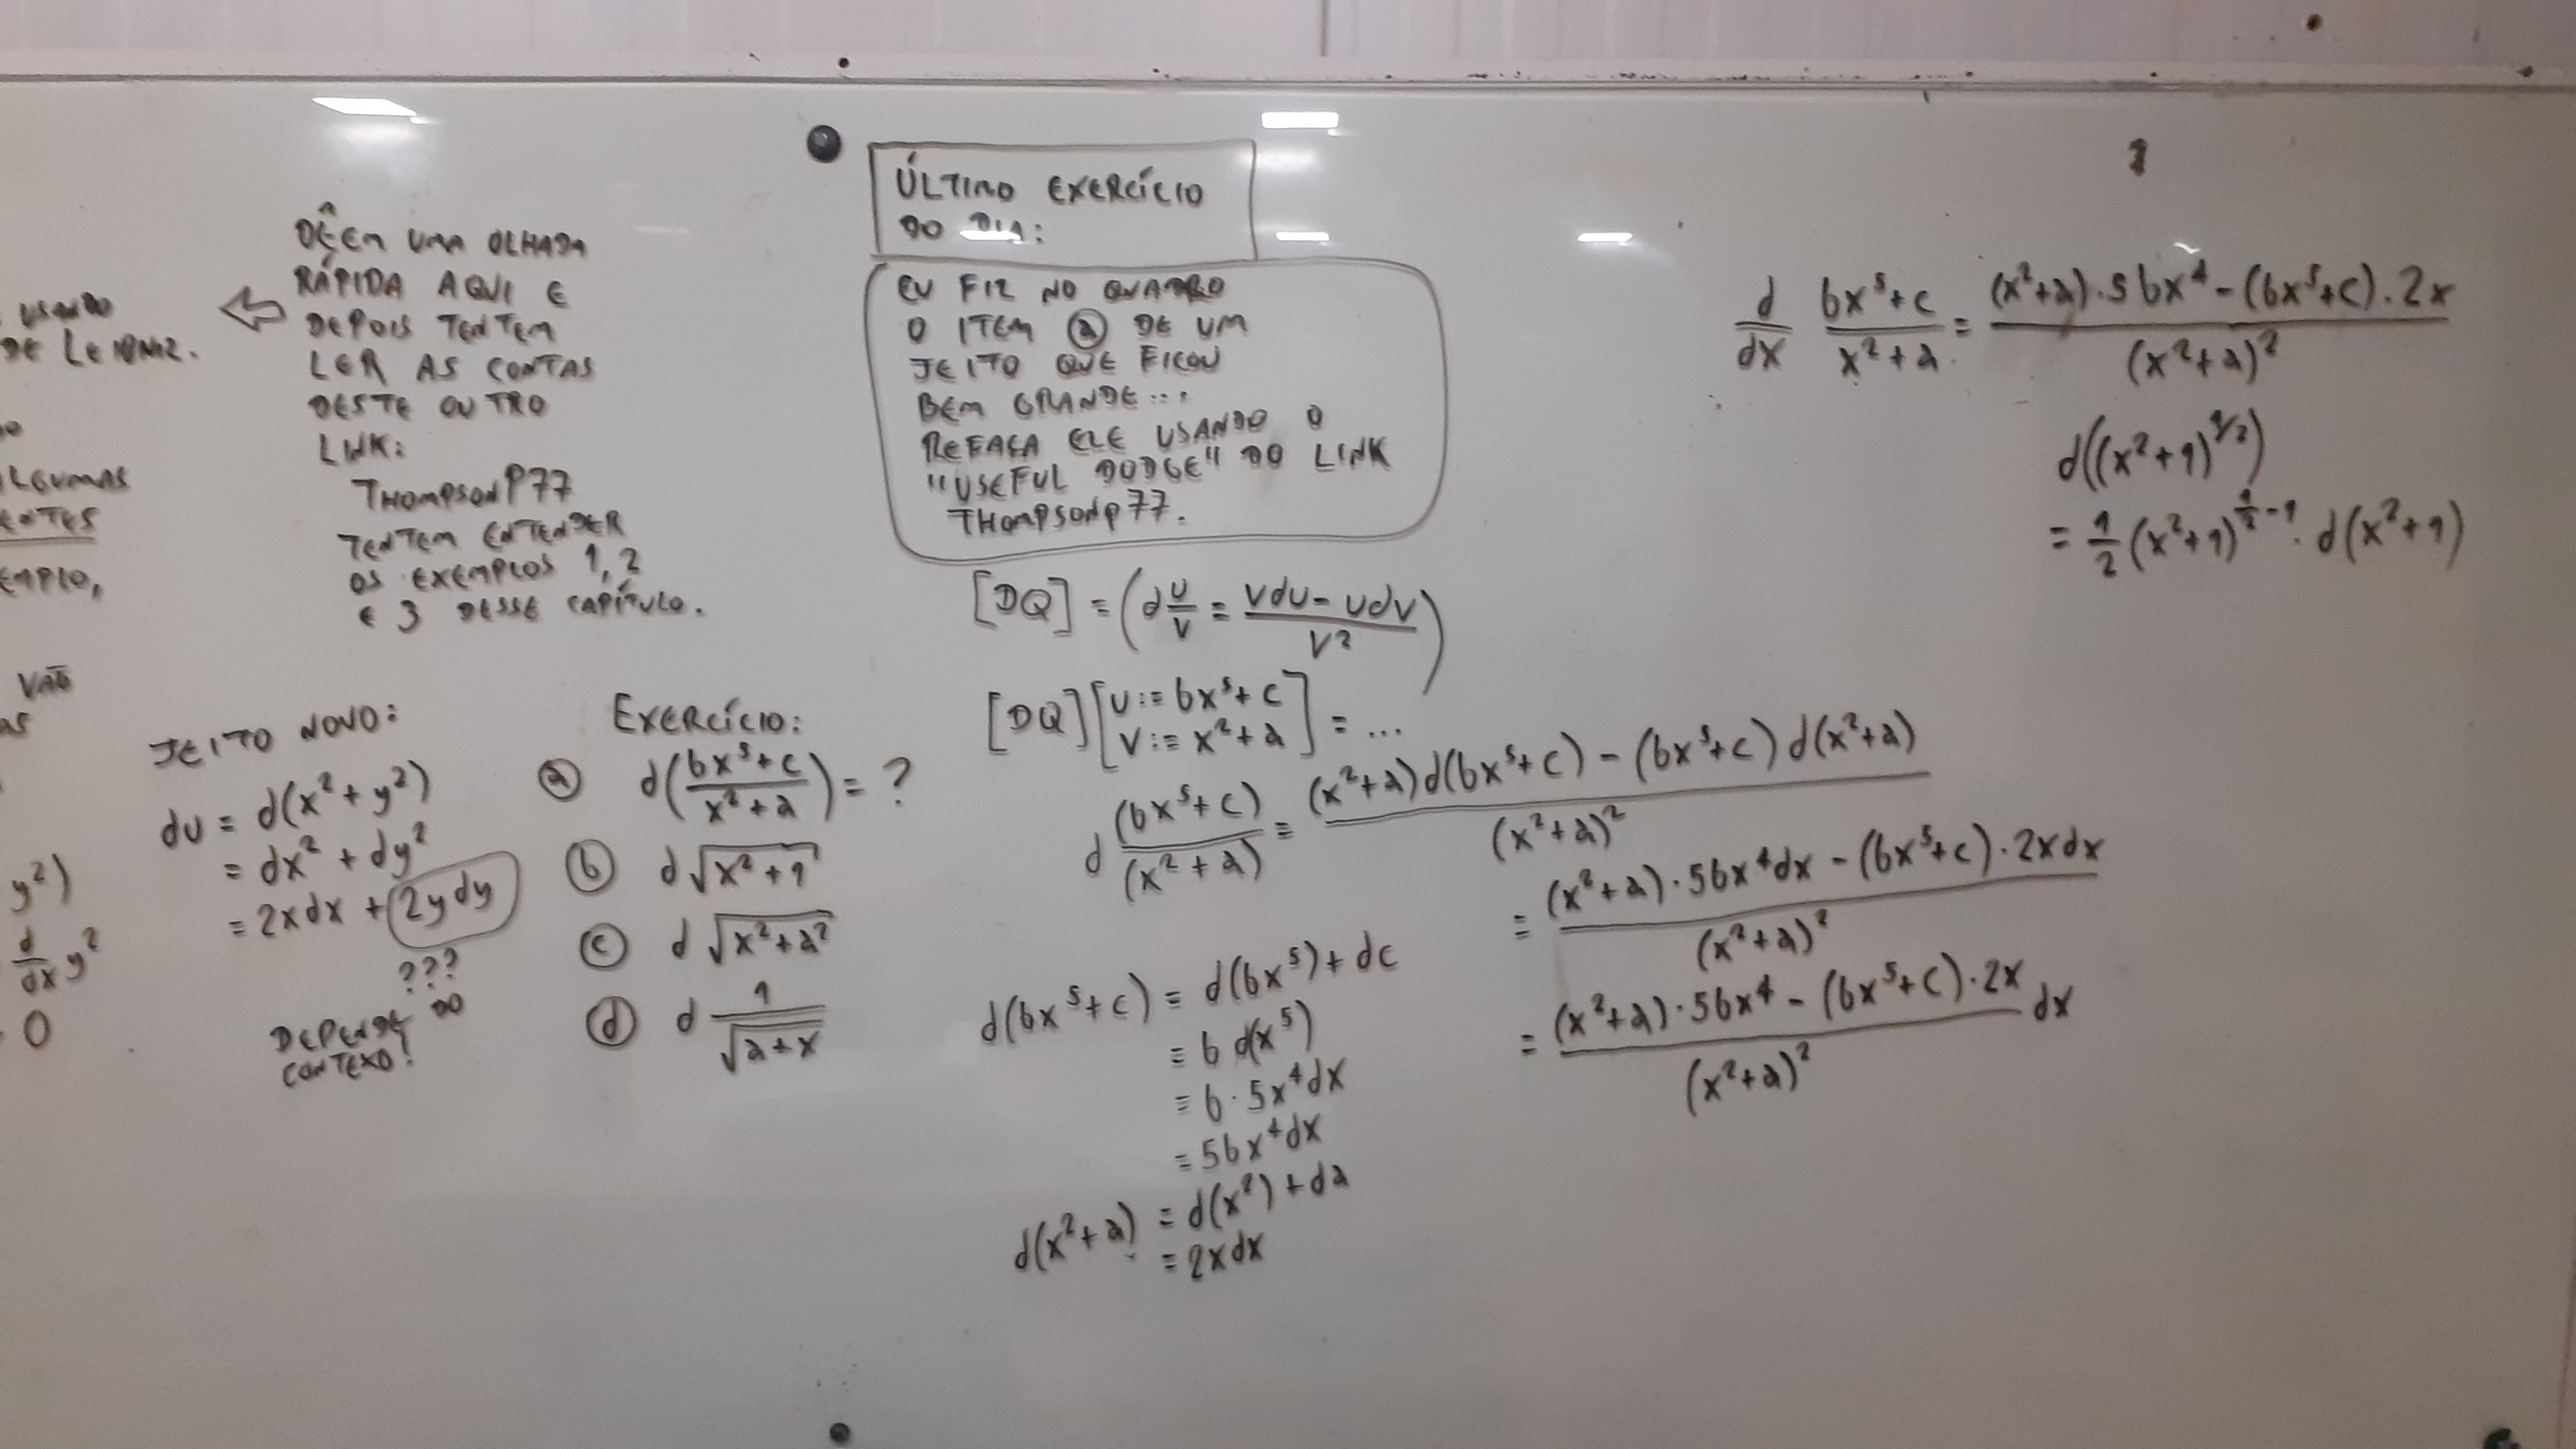 USANDO
DE LEIBNIZ.
LGUMAS
ENTES
EMPLO,
VÃO
AS
y²)
d/dx y²
0
DÊEM UMA OLHADA
RÁPIDA AQUI E
DEPOIS TENTEM
LER AS CONTAS
DESTE OUTRO
LINK:
THOMPSONP77
TENTEM ENTENDER
OS EXEMPLOS 1, 2
E 3 DESSE CAPÍTULO.
JEITO NOVO:
du = d(x² + y²)
= dx² + dy²
= 2xdx + 2ydy
???
DEPENDE DO
CONTEXO!
EXERCÍCIO:
(a) d((bx⁵+c)/(x²+a)) = ?
(b) d√(x²+1)
(c) d√(x²+a²)
(d) d 1/√(a+x)
ÚLTIMO EXERCÍCIO
DO DIA:
EU FIZ NO QUADRO
O ITEM (a) DE UM
JEITO QUE FICOU
BEM GRANDE...
REFAÇA ELE USANDO O
"USEFUL DODGE" DO LINK
THOMPSONP77.
[DQ] = (d u/v = (vdu - udv)/v²)
[DQ][u := bx⁵+c
v := x²+a] = ...
d (bx⁵+c)/(x²+a) = ((x²+a)d(bx⁵+c) - (bx⁵+c)d(x²+a))/(x²+a)²
= ((x²+a)·5bx⁴dx - (bx⁵+c)·2xdx)/(x²+a)²
= ((x²+a)·5bx⁴ - (bx⁵+c)·2x)/(x²+a)² dx
d(bx⁵+c) = d(bx⁵) + dc
= b d(x⁵)
= b·5x⁴dx
= 5bx⁴dx
d(x²+a) = d(x²) + da
= 2xdx
d/dx (bx⁵+c)/(x²+a) = ((x²+a)·5bx⁴ - (bx⁵+c)·2x)/(x²+a)²
d((x²+1)^(1/2))
= 1/2 (x²+1)^(1/2 - 1) · d(x²+1)